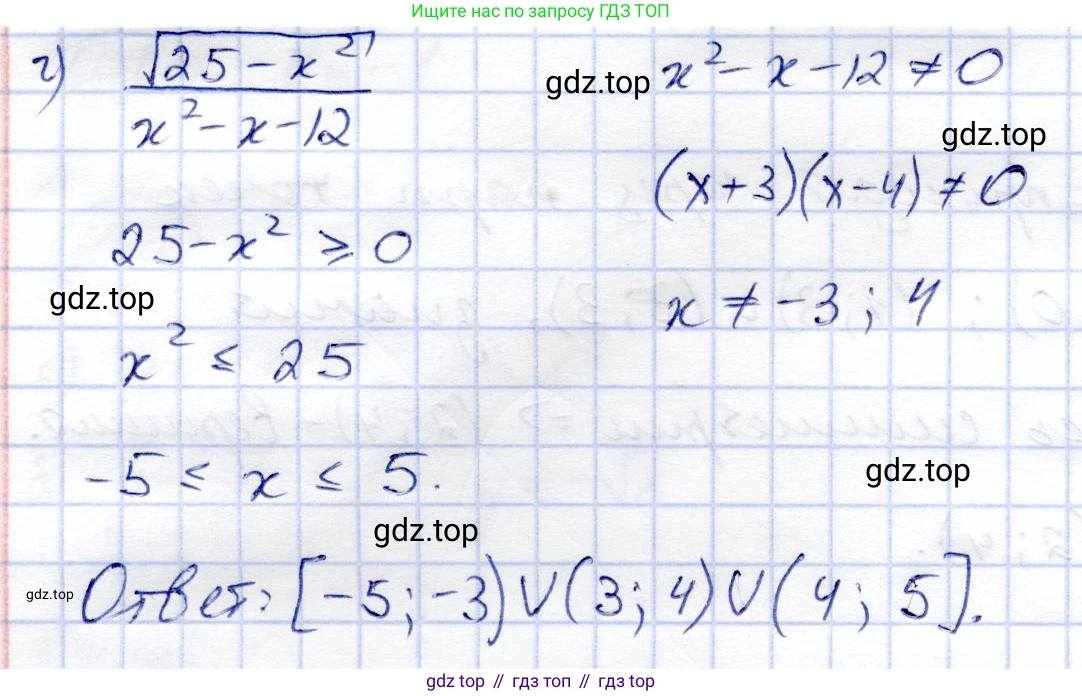 Ищите нас по запросу ГДЗ ТОП
г) √(25 - x²) / (x² - x - 12)
x² - x - 12 ≠ 0
gdz.top
gdz.top
(x+3)(x-4) ≠ 0
25 - x² ⩾ 0
gdz.top
x ≠ -3; 4
x² ≤ 25
-5 ≤ x ≤ 5.
gdz.top
gdz.top
gdz.top
Ответ: [-5; -3) ∪ (3; 4) ∪ (4; 5].
gdz.top // гдз топ // gdz.top